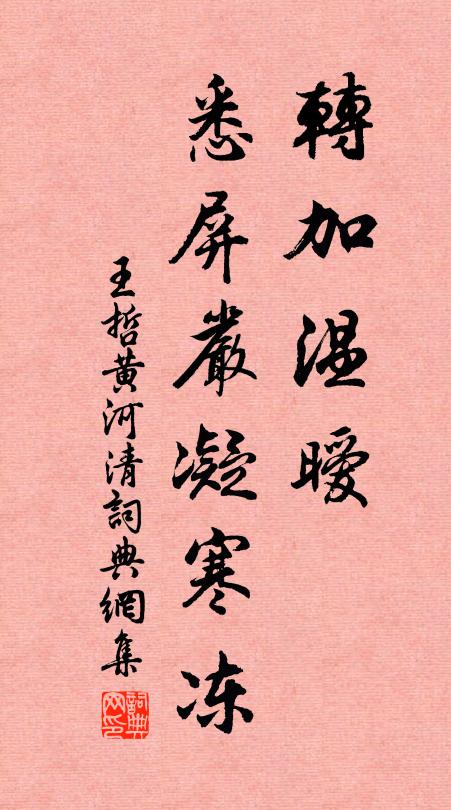 轉加温曖
悉屏嚴凝寒冻
王哲黄河清詞典網集
詞典网印